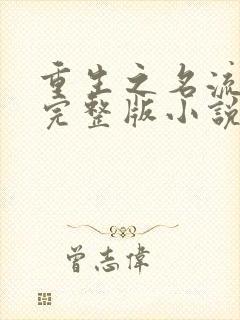 重生之名流
完整版小說
曾志偉